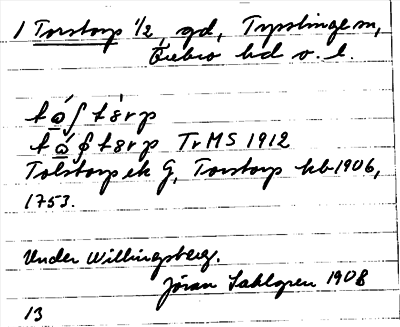 1 Torstorp 1/2, gd, Tysslinge sn,
Örebro hd o. l.
tǫ́ʃtèrp
tǫ́ʃtɵrp TrMS 1912
Tolstorp ek G, Torstorp kb 1906,
1753.
Under Willingsberg.
Jöran Sahlgren 1908
13